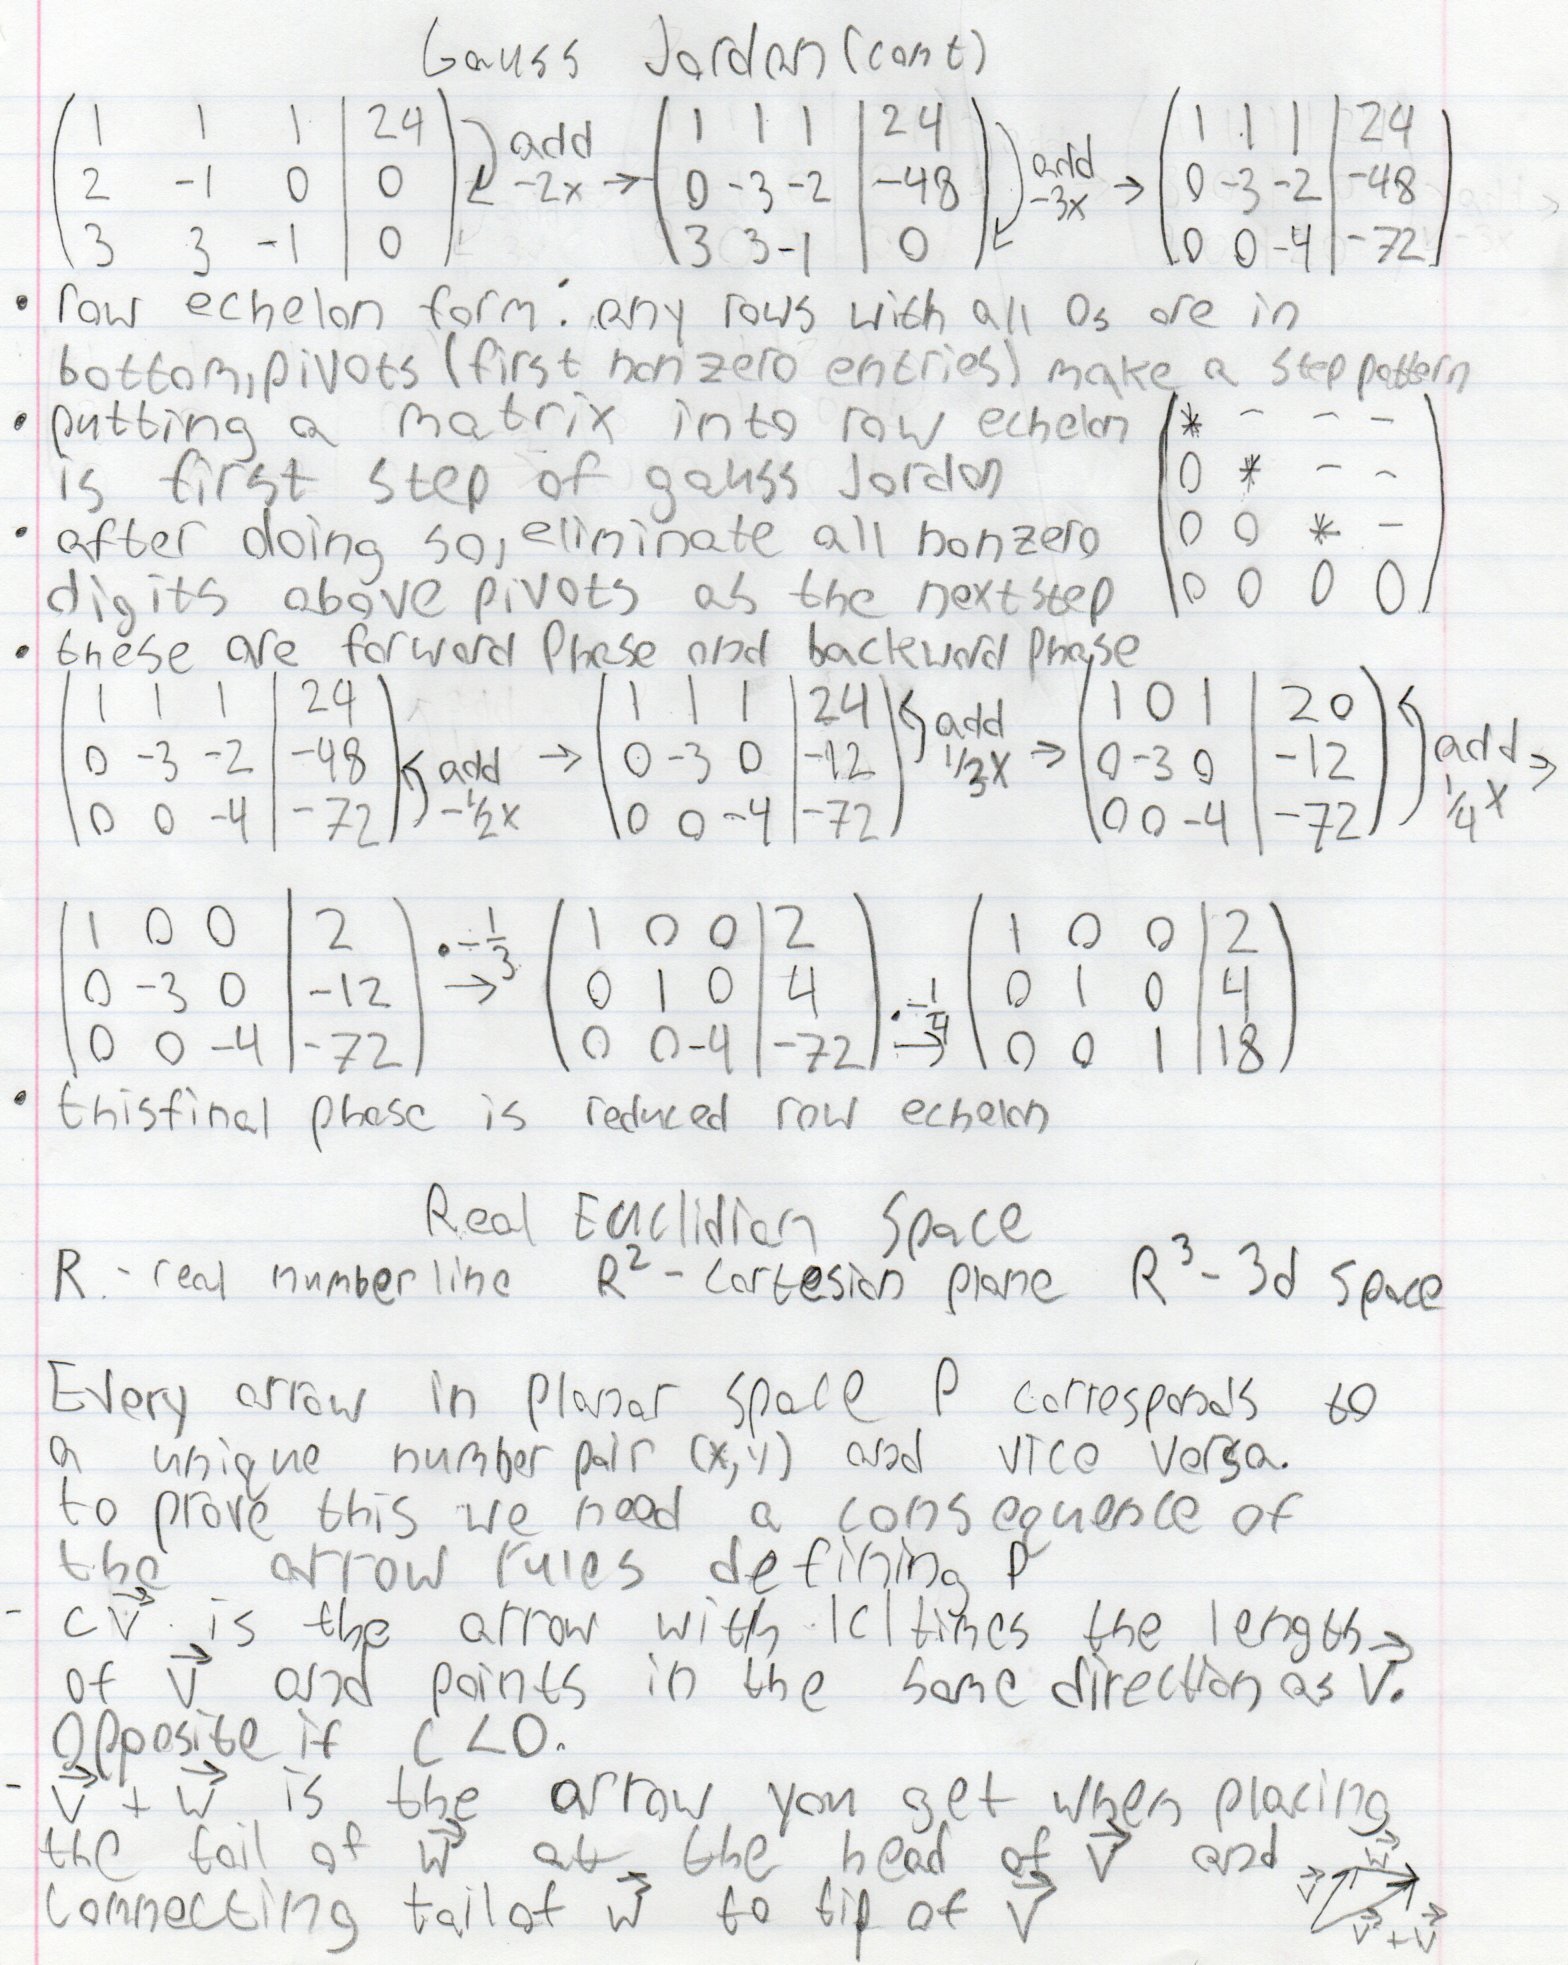 Gauss Jordan (cont)
( 1 1 1 | 24 ) ( 1 1 1 | 24 ) ( 1 1 1 | 24 )
( 2 -1 0 | 0 ) add -2x → ( 0 -3 -2 | -48 ) add -3x → ( 0 -3 -2 | -48 )
( 3 3 -1 | 0 ) ( 3 3 -1 | 0 ) ( 0 0 -4 | -72 )
• row echelon form: any rows with all 0s are in
bottom, pivots (first nonzero entries) make a step pattern
• putting a matrix into row echelon ( * - - - )
is first step of gauss Jordan ( 0 * - - )
• after doing so, eliminate all nonzero ( 0 0 * - )
digits above pivots as the next step ( 0 0 0 0 )
• these are forward Phase and backward phase
( 1 1 1 | 24 ) ( 1 1 1 | 24 ) ( 1 0 1 | 20 )
( 0 -3 -2 | -48 ) add -1/2x → ( 0 -3 0 | -12 ) add 1/3x → ( 0 -3 0 | -12 ) add 1/4x →
( 0 0 -4 | -72 ) ( 0 0 -4 | -72 ) ( 0 0 -4 | -72 )
( 1 0 0 | 2 ) •-1/3 ( 1 0 0 | 2 ) ( 1 0 0 | 2 )
( 0 -3 0 | -12 ) → ( 0 1 0 | 4 ) •-1/4 ( 0 1 0 | 4 )
( 0 0 -4 | -72 ) ( 0 0 -4 | -72 ) → ( 0 0 1 | 18 )
• this final phase is reduced row echelon
Real Euclidian Space
R - real number line R² - Cartesian plane R³ - 3d space
Every arrow in planar space P corresponds to
a unique number pair (x,y) and vice versa.
to prove this we need a consequence of
the arrow rules defining P
- cv⃗ is the arrow with |c| times the length
of v⃗ and points in the same direction as v⃗.
Opposite if c<0.
- v⃗ + w⃗ is the arrow you get when placing
the tail of w⃗ at the head of v⃗ and v⃗ w⃗
connecting tail of w⃗ to tip of v⃗ v⃗ + v⃗